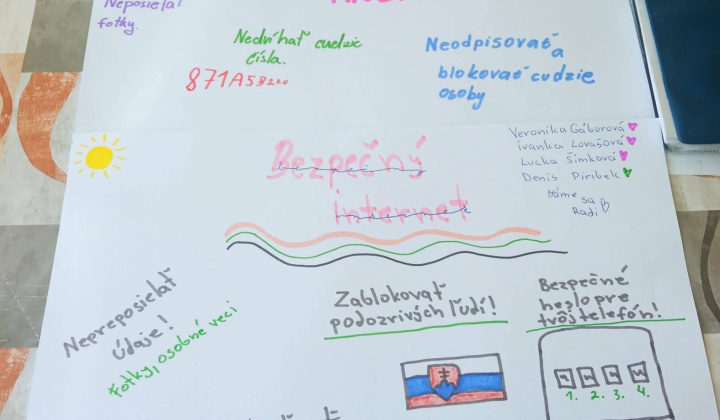 Neposielať
fotky.
Nedvíhať cudzie
čísla.
Neodpisovať a
blokovať cudzie
osoby
Bezpečný
internet
Veronika Gáborová
Ivanka Lovašová
Lucka Šimková
Denis Piribek
Máme sa
Radi
Nepreposielať
údaje!
fotky, osobné veci
Zablokovať
podozrivých ľudí!
Bezpečné
heslo pre
tvoj telefón!
1. 2. 3. 4.